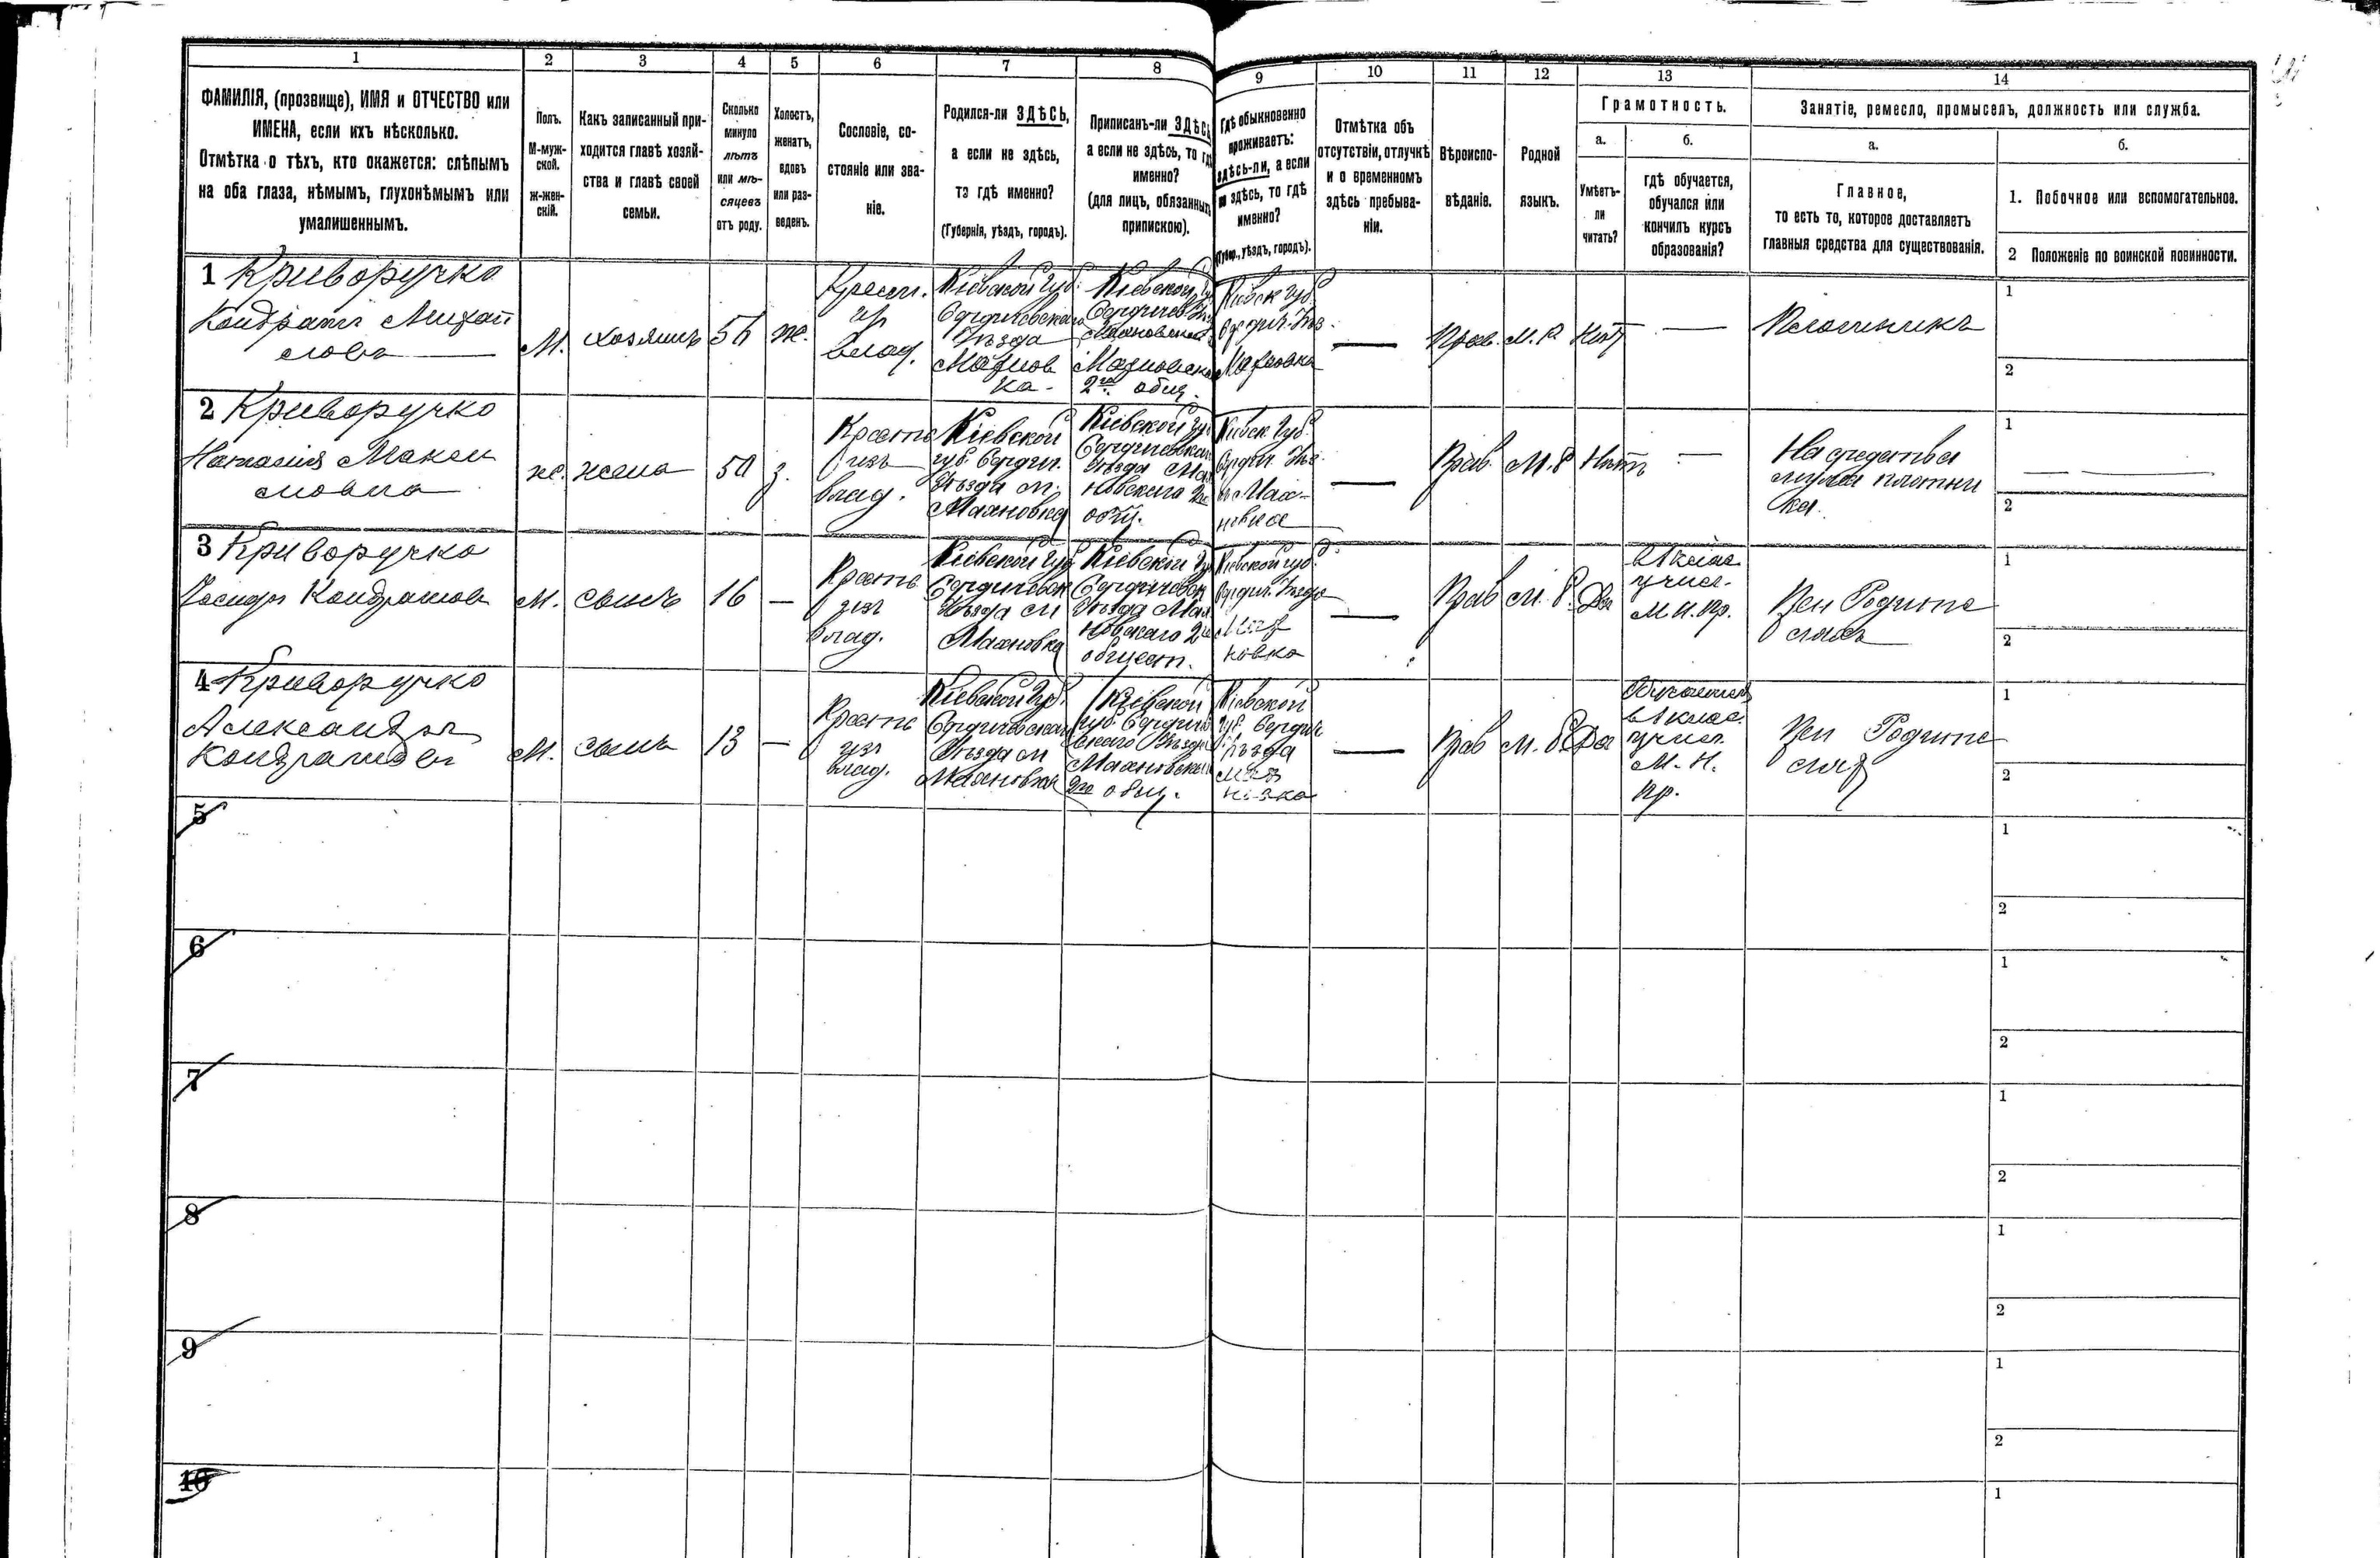 1
2
3
4
5
6
7
8
9
10
11
12
13
14
ФАМИЛІЯ, (прозвище), ИМЯ и ОТЧЕСТВО или
ИМЕНА, если ихъ нѣсколько.
Отмѣтка о тѣхъ, кто окажется: слѣпымъ
на оба глаза, нѣмымъ, глухонѣмымъ или
умалишеннымъ.
Полъ.
М-муж-
ской.
ж-жен-
скій.
Какъ записанный при-
ходится главѣ хозяй-
ства и главѣ своей
семьи.
Сколько
минуло
лѣтъ
или мѣ-
сяцевъ
отъ роду.
Холостъ,
женатъ,
вдовъ
или раз-
веденъ.
Сословіе, со-
стояніе или зва-
ніе.
Родился-ли ЗДѢСЬ,
а если не здѣсь,
то гдѣ именно?
(Губернія, уѣздъ, городъ).
Приписанъ-ли ЗДѢСЬ,
а если не здѣсь, то гдѣ
именно?
(для лицъ, обязанныхъ
припискою).
Гдѣ обыкновенно
проживаетъ:
здѣсь-ли, а если
не здѣсь, то гдѣ
именно?
(Губер., уѣздъ, городъ).
Отмѣтка объ
отсутствіи, отлучкѣ
и о временномъ
здѣсь пребыва-
ніи.
Вѣроиспо-
вѣданіе.
Родной
языкъ.
Грамотность.
а.
Умѣетъ-
ли
читать?
б.
гдѣ обучается,
обучался или
кончилъ курсъ
образованія?
Занятіе, ремесло, промыселъ, должность или служба.
а.
Главное,
то есть то, которое доставляетъ
главныя средства для существованія.
б.
1. Побочное или вспомогательное.
2 Положеніе по воинской повинности.
1 Криворучко
Кондратъ Михай
ловъ
М.
хозяинъ
56
ж.
Крест.
из
влад.
Кіевской Губ.
Бердичевскаго
Уѣзда
Махнов
ка
Кіевской Губ
Бердичев. Уѣз
Махновской
Махновскаго
2го общ.
Кіевск Губ.
Бердич. Уѣз.
Махновка
—
Прав.
М. Р.
Нѣт
—
Плотникъ
1
2
2 Криворучко
Наталия Макси
мовна
ж.
жена
50
з.
Крестъ
изъ
влад.
Кіевской
губ. Бердич.
Уѣзда м.
Махновка
Кіевской губ
Бердичевскаго
Уѣзда Мах
новскаго 2го
общ.
Кіевск. Губ.
Бердич. Уѣз.
Мах-
новка
—
Прав.
М. Р
Нѣтъ
—
На средства
мужа плотни
ка.
1
2
3 Криворучко
Кондратов
М.
сынъ
16
—
Крестъ
изъ
влад.
Кіевской Губ
Бердичевск
Уѣзда м
Махновка
Кіевской Губ
Бердичевск
Уѣзда Мах
новскаго 2го
общест.
Кіевской губ.
Бердич. Уѣзда
Мах
новка
—
Прав
М. Р.
Да
в 1 клас
учил.
М. Н. Пр.
При Родите
лях
1
2
4 Криворучко
Александръ
Кондратовъ
М.
сынъ
13
—
Крестъ
изъ
влад.
Кіевской Губ.
Бердичевскаго
Уѣзда м
Махновка
Кіевской
губ. Бердиче
вскаго Уѣзда
Махновскаго
2го общ.
Кіевской
Губ. Бердич
Уѣзда
Мах
новка
—
Прав
М. Р.
Да
Обучается
в 1 клас.
учил.
М. Н.
Пр.
При Родите
лях
1
2
5
1
2
6
1
2
7
1
2
8
1
2
9
1
2
10
1